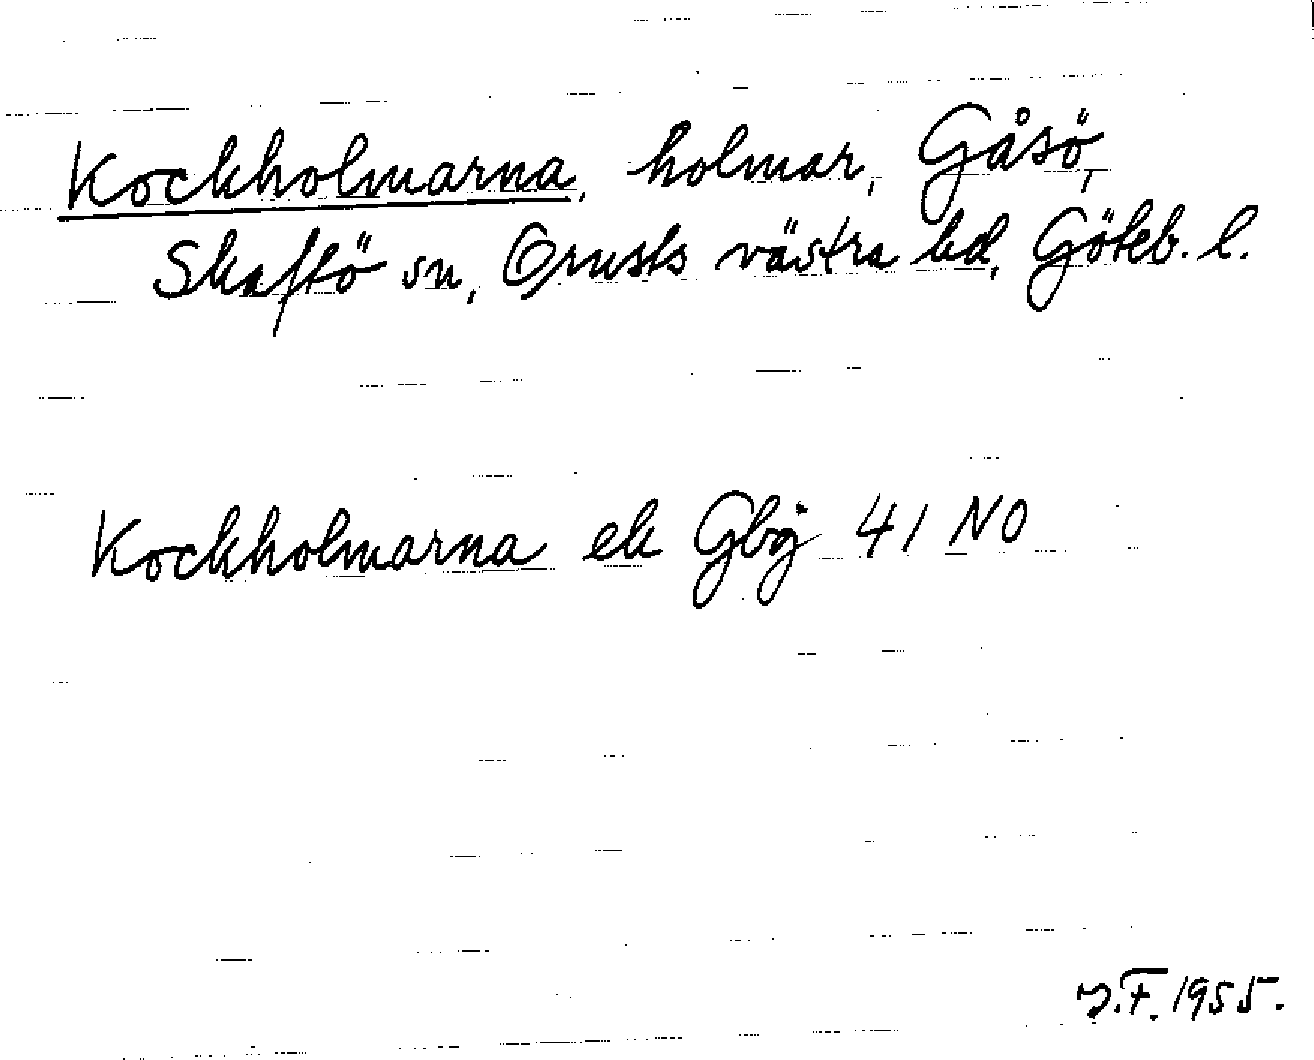 Kockholmarna, holmar, Gåsö,
Skaftö sn, Orusts västra hd, Göteb. l.
Kockholmarna ek Gbg 41 NO
J.F. 1955.